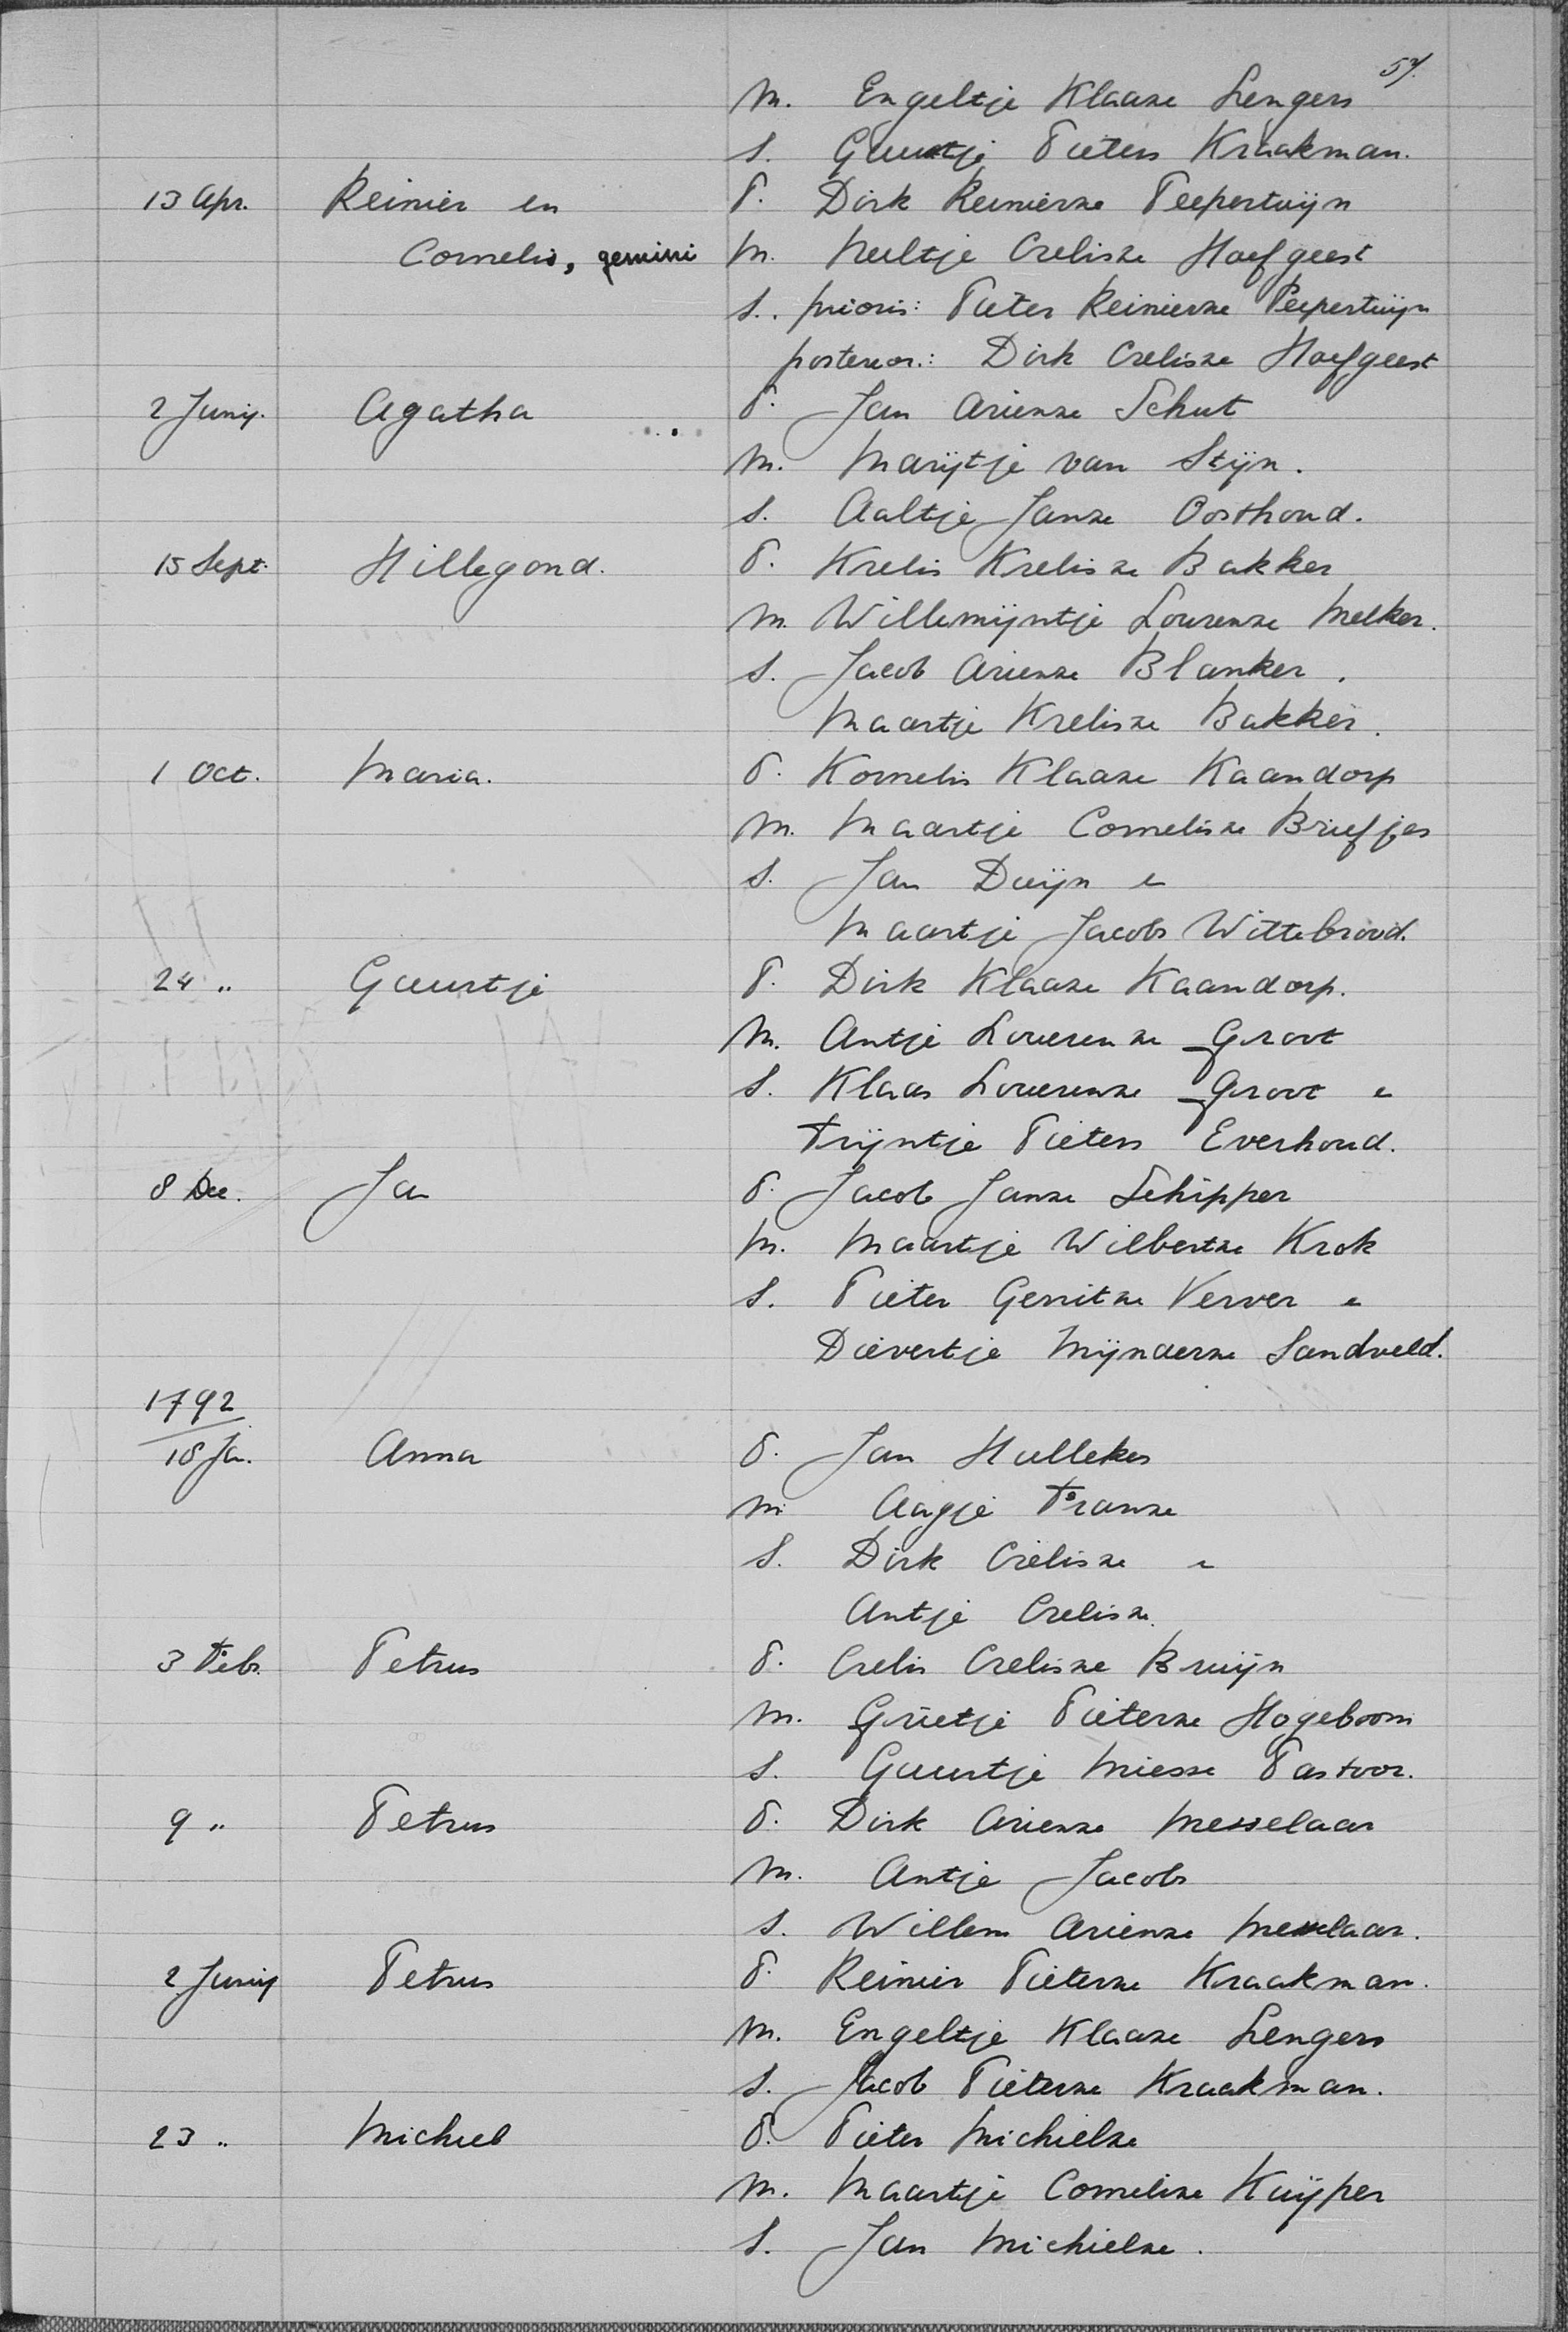 57.
M. Engeltje Klaasze Lengers
S. Guurtje Pieters Kraakman.
13 Apr. Reinier en P. Dirk Reinierze Peepertuijn
Cornelis, gemini M. Neeltje Crelisze Hoefgeest
S. prioris: Pieter Reinierze Peepertuijn
posterior.: Dirk Crelisze Hoefgeest
2 Junij. Agatha P. Jan Arienze Schut
M. Marijtje van Stijn.
S. Aaltje Janze Oosthoud.
15 Sept. Hillegond. P. Krelis Krelisze Bakker
M. Willemijntje Lourenze Melker.
S. Jacob Arienze Blanker.
Maartje Krelisze Bakker.
1 Oct. Maria. P. Kornelis Klaaze Kaandorp
M. Maartje Cornelisze Briefjes
S. Jan Duijn e
Maartje Jacobs Wittebrood.
24 " Guurtje P. Dirk Klaaze Kaandorp.
M. Antje Louerenze Groot
S. Klaas Louerenze Groot e
Trijntje Pieters Everhoud.
8 Dec. Jan P. Jacob Janze Schipper
M. Maartje Wilbertze Krok
S. Pieter Gerritze Verver e
Dievertje Mijnderze Sandveld.
1792
18 Ja. Anna P. Jan Hullekes
M Aagje Franze
S. Dirk Crelisze e
Antje Crelisze.
3 Feb. Petrus P. Crelis Crelisze Bruijn
M. Grietje Pieterze Hogeboom
S. Guurtje Miesse Pastoor.
9 " Petrus P. Dirk Arienze Messelaar
M. Antje Jacobs
S. Willem Arienze Messelaar.
2 Junij Petrus P. Reinier Pieterze Kraakman.
M. Engeltje Klaaze Lengers
S. Jacob Pieterze Kraakman.
23 " Michiel P. Pieter Michielze
M. Maartje Cornelisze Kuijper
S. Jan Michielze.